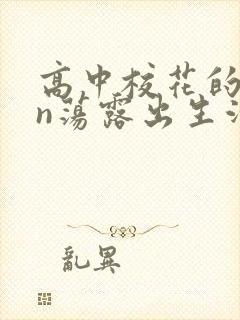 高中校花的
n蕩露出生
亂異